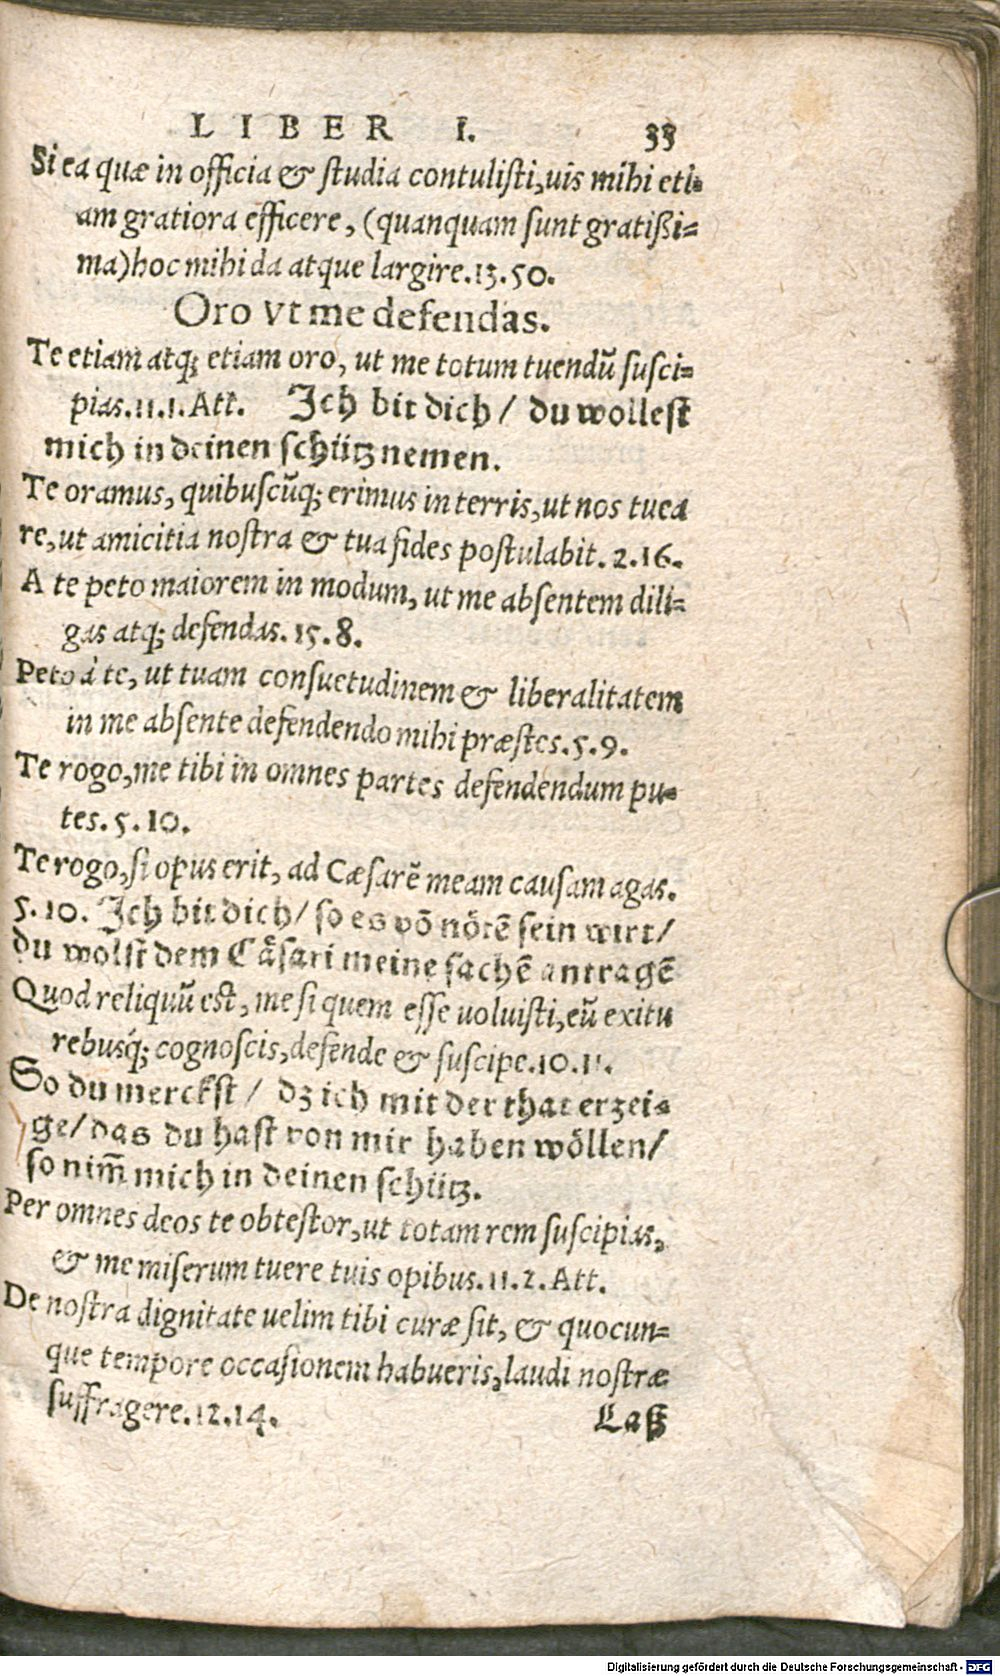 LIBER I. 33
Si ea quæ in officia & ſtudia contuliſti, uis mihi eti-
am gratiora efficere, (quanquam ſunt gratißi-
ma) hoc mihi da atque largire. 13. 50.
Oro vt me defendas.
Te etiam atq; etiam oro, ut me totum tuendũ ſuſci-
pias. 11. 1. Att. Ich bit dich / du wolleſt
mich in deinen ſchütz nemen.
Te oramus, quibuſcũq; erimus in terris, ut nos tuea
re, ut amicitia noſtra & tua fides poſtulabit. 2. 16.
A te peto maiorem in modum, ut me abſentem dili-
gas atq; defendas. 15. 8.
Peto à te, ut tuam conſuetudinem & liberalitatem
in me abſente defendendo mihi præſtes. 5. 9.
Te rogo, me tibi in omnes partes defendendum pu-
tes. 5. 10.
Te rogo, ſi opus erit, ad Cæſarẽ meam cauſam agas.
5. 10. Ich bit dich / ſo es võ nötẽ ſein wirt /
du wolſt dem Cåſari meine ſachẽ antragẽ
Quod reliquũ eſt, me ſi quem eſſe uoluiſti, eũ exitu
rebusq́; cognoſcis, defende & ſuſcipe. 10. 11.
So du merckſt / dz ich mit der that erzei-
ge / das du haſt von mir haben wöllen /
ſo nim̃ mich in deinen ſchütz.
Per omnes deos te obteſtor, ut totam rem ſuſcipias,
& me miſerum tuere tuis opibus. 11. 2. Att.
De noſtra dignitate uelim tibi curæ ſit, & quocun-
que tempore occaſionem habueris, laudi noſtræ
ſuffragere. 12. 14. Laß
Digitalisierung gefördert durch die Deutsche Forschungsgemeinschaft - DFG